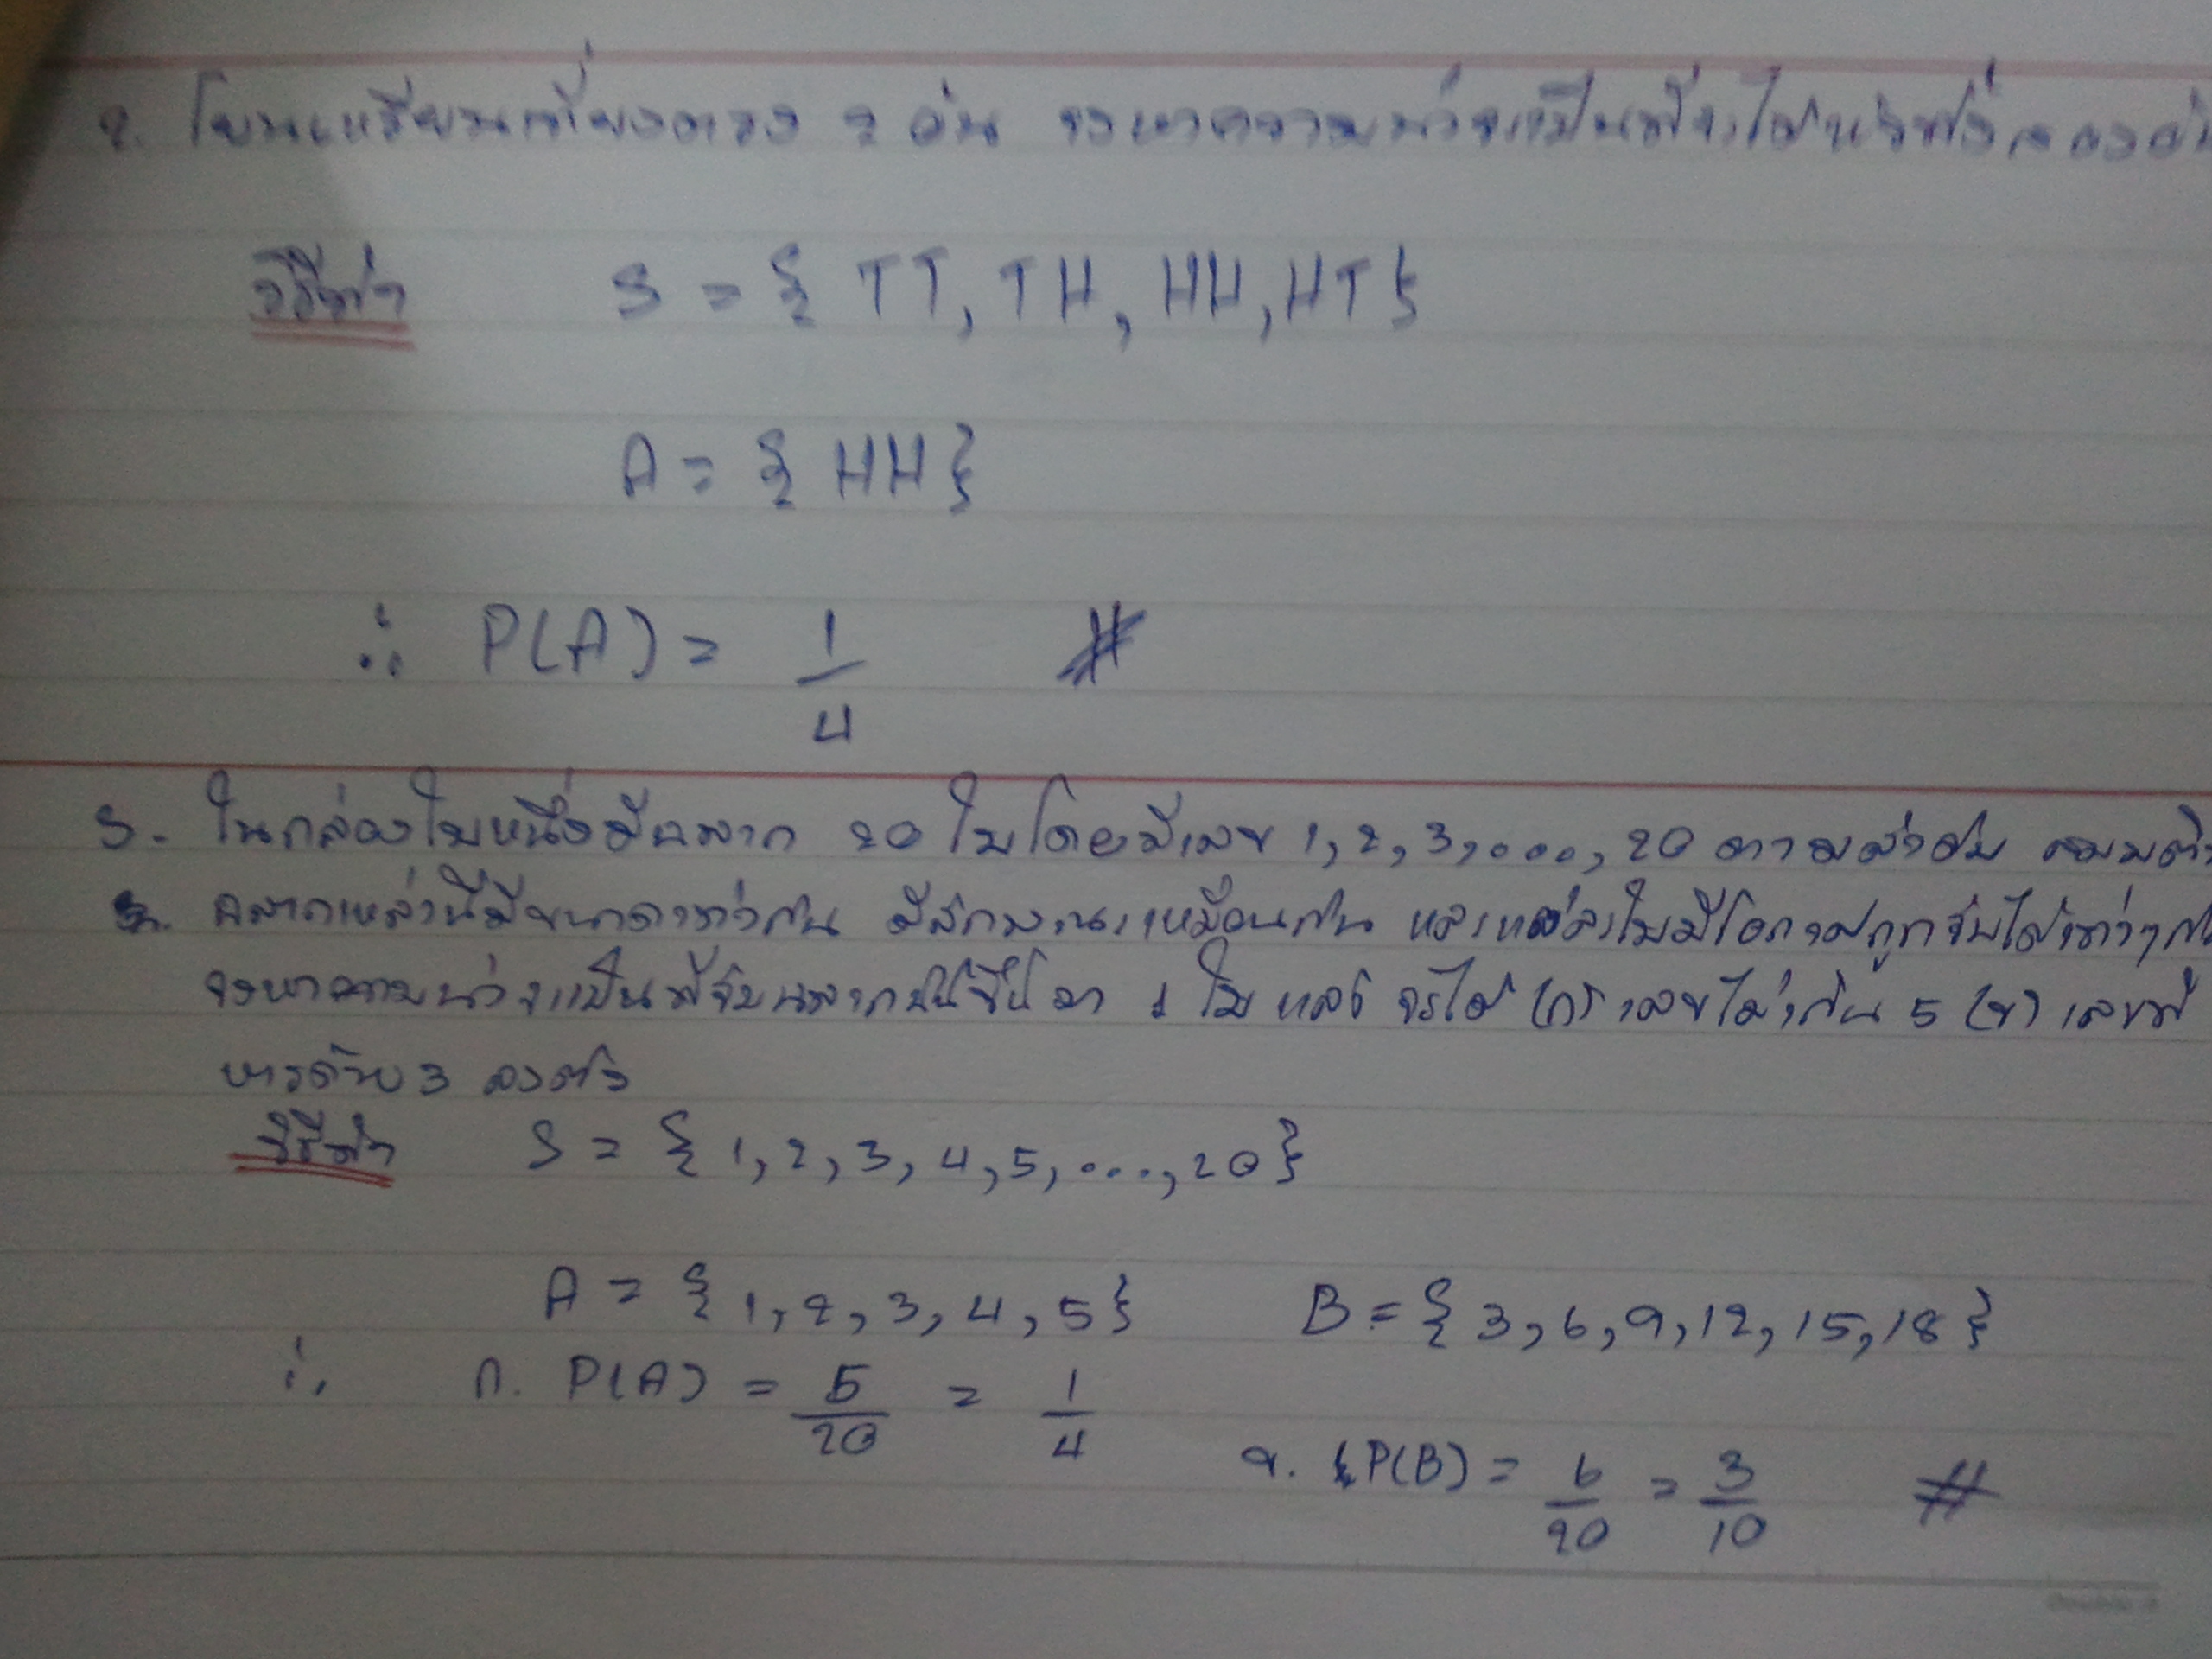 2. โยนเหรียญเที่ยงตรง 2 อัน จงหาความน่าจะเป็นที่จะได้หัวทั้งสองอัน
วิธีทำ S = { TT, TH, HH, HT }
A = { HH }
∴ P(A) = 1/4 #
3. ในกล่องใบหนึ่งมีฉลาก 20 ใบโดยมีเลข 1, 2, 3, ..., 20 ตามลำดับ สมมติ
ฉลากเหล่านี้มีขนาดเท่ากัน มีลักษณะเหมือนกัน และแต่ละใบมีโอกาสถูกจับได้เท่าๆกัน
จงหาความน่าจะเป็นที่จับฉลากนี้ขึ้นมา 1 ใบ แล้ว จะได้ (ก) เลขไม่เกิน 5 (ข) เลขที่
หารด้วย 3 ลงตัว
วิธีทำ S = { 1, 2, 3, 4, 5, ..., 20 }
A = { 1, 2, 3, 4, 5 } B = { 3, 6, 9, 12, 15, 18 }
∴ ก. P(A) = 5/20 = 1/4
ข. P(B) = 6/20 = 3/10 #